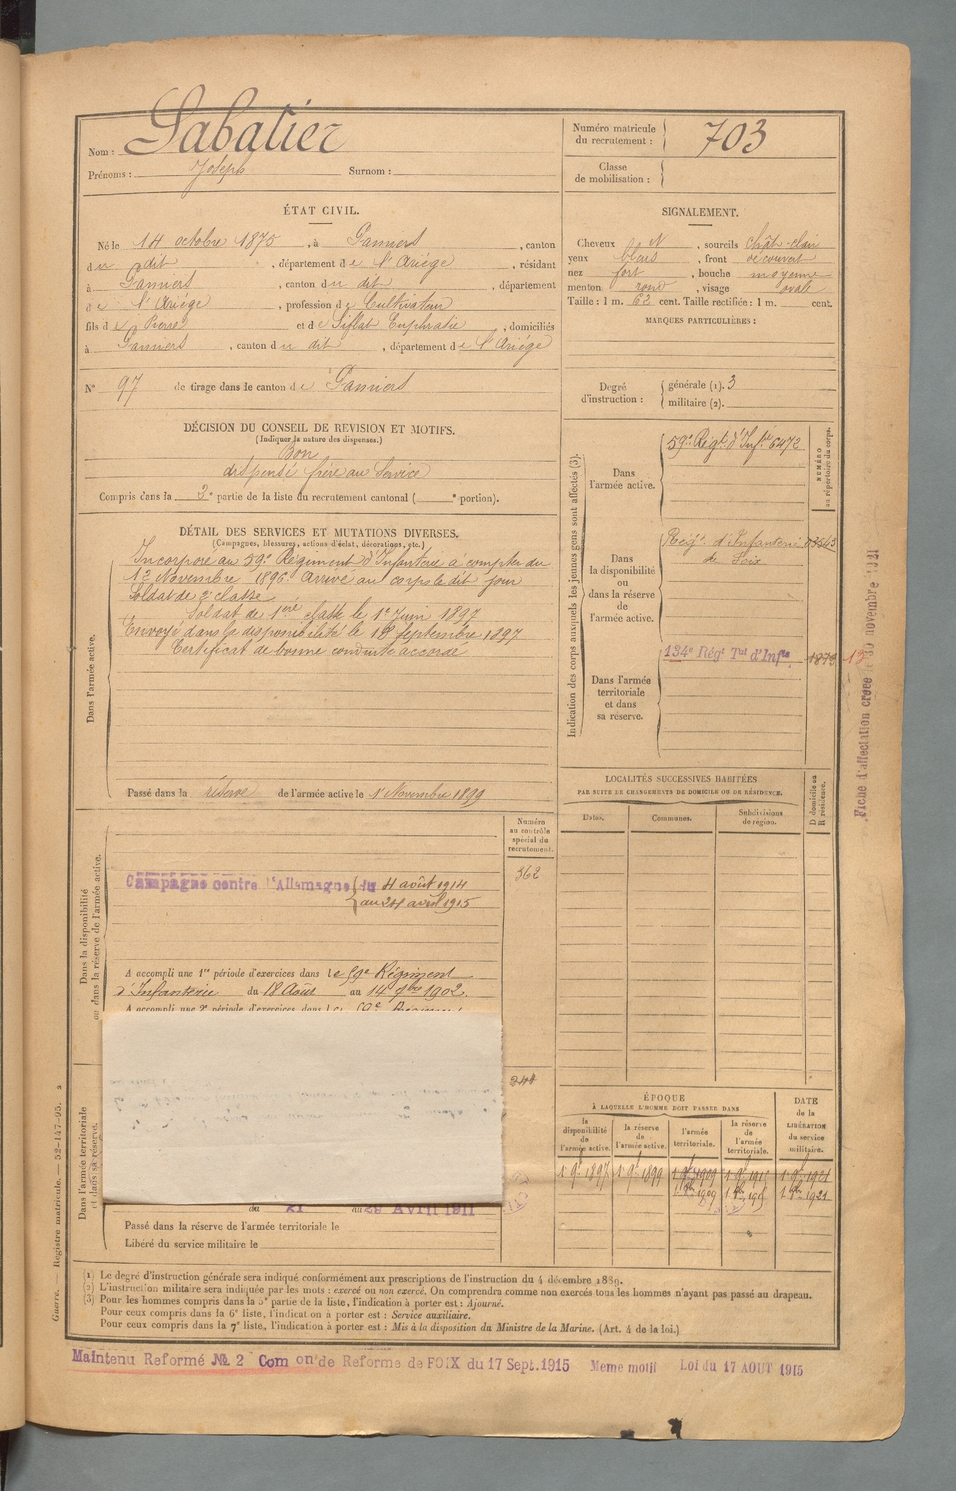 Nom : Sabatier
Prénoms : Joseph Surnom :
Numéro matricule du recrutement : 703
Classe de mobilisation :
ÉTAT CIVIL.
Né le 14 octobre 1875, à Pamiers, canton
du dit, département de l'Ariège, résidant
à Pamiers, canton du dit, département
de l'Ariège, profession de Cultivateur
fils de Pierre et de Siflat Euphrasie, domiciliés
à Pamiers, canton du dit, département de l'Ariège
N° 97 de tirage dans le canton de Pamiers
SIGNALEMENT.
Cheveux et, sourcils chât-clair
yeux bleus, front découvert
nez fort, bouche moyenne
menton rond, visage ovale
Taille : 1 m. 62 cent. Taille rectifiée : 1 m. cent.
MARQUES PARTICULIÈRES :
Degré d'instruction : générale (1). 3
militaire (2).
DÉCISION DU CONSEIL DE REVISION ET MOTIFS.
(Indiquer la nature des dispenses.)
Bon
dispensé frère au Service
Compris dans la 2e partie de la liste du recrutement cantonal ( e portion).
DÉTAIL DES SERVICES ET MUTATIONS DIVERSES.
(Campagnes, blessures, actions d'éclat, décorations, etc.)
Dans l'armée active.
Incorporé au 59e Régiment d'Infanterie à compter du
12 Novembre 1896. Arrivé au corps le dit jour
Soldat de 2e classe
Soldat de 1ère classe le 1er Juin 1897
Envoyé dans la disponibilité le 18 Septembre 1897
Certificat de bonne conduite accordé
Passé dans la réserve de l'armée active le 1er Novembre 1899
Indication des corps auxquels les jeunes gens sont affectés (3).
NUMÉRO au répertoire du corps.
Dans l'armée active.
59e Régt d'Infie 6472
Dans la disponibilité ou dans la réserve de l'armée active.
Régt d'Infanterie
de Foix
Dans l'armée territoriale et dans sa réserve.
134e Régt Tal d'Infie 1879 13
Fiche d'affectation créée le 30 novembre 1921
LOCALITÉS SUCCESSIVES HABITÉES
PAR SUITE DE CHANGEMENTS DE DOMICILE OU DE RÉSIDENCE.
Dates. Communes. Subdivisions de région. D domicile ou R résidence.
Dans la disponibilité ou dans la réserve de l'armée active.
Numéro au contrôle spécial du recrutement.
362
Campagne contre l'Allemagne du 4 août 1914
au 24 avril 1915
A accompli une 1re période d'exercices dans le 59e Régiment
d'Infanterie du 18 Août au 14 7bre 1902.
A accompli une 2e période d'exercices dans le 59e Régiment
Dans l'armée territoriale et dans sa réserve.
244
du 21 au 29 Avril 1911
Passé dans la réserve de l'armée territoriale le
Libéré du service militaire le
ÉPOQUE
À LAQUELLE L'HOMME DOIT PASSER DANS
la disponibilité de l'armée active. la réserve de l'armée active. l'armée territoriale. la réserve de l'armée territoriale.
DATE de la LIBÉRATION du service militaire.
1er 9bre 1897 1er 9bre 1899 1er 9bre 1909 1er 9bre 1915 1er 9bre 1921
(1) Le degré d'instruction générale sera indiqué conformément aux prescriptions de l'instruction du 4 décembre 1889.
(2) L'instruction militaire sera indiquée par les mots : exercé ou non exercé. On comprendra comme non exercés tous les hommes n'ayant pas passé au drapeau.
(3) Pour les hommes compris dans la 5e partie de la liste, l'indication à porter est : Ajourné.
Pour ceux compris dans la 6e liste, l'indication à porter est : Service auxiliaire.
Pour ceux compris dans la 7e liste, l'indication à porter est : Mis à la disposition du Ministre de la Marine. (Art. 4 de la loi.)
Guerre. — Registre matricule. — 52-147-95. 2
Maintenu Reformé № 2 Com on de Reforme de FOIX du 17 Sept. 1915 Meme motif Loi du 17 AOUT 1915